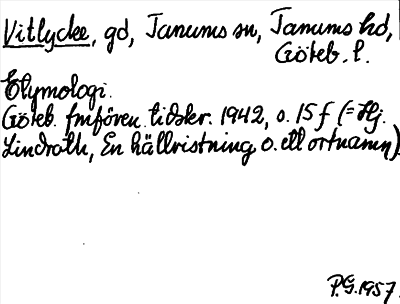 Vitlycke, gd, Tanums sn, Tanums hd,
Göteb. l.
Etymologi.
Göteb. fmfören. tidskr. 1942, s. 15 f (= Hj.
Lindroth, En hällristning o. ett ortnamn).
P.G. 1957.